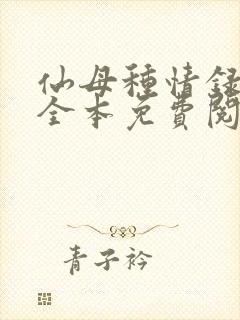 仙母種情録
全本免費閱
青子衿